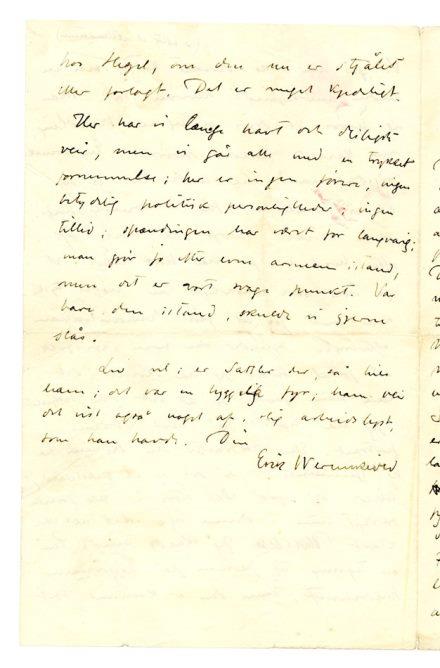 hos Hegel, om den nu er stjålet
eller forlagt. Det er meget kjedeligt.
Her har vi længe havt et deiligt
veir, men vi går alle med en trykket
fornemmelse; her er ingen førere, ingen
betydelig politisk personligheder, ingen
tillid; spændingen har været for langvarig;
man gør jo efter evne armeen istand,
men det er vort svage punkt. Var
bare den istand, skulde vi gjerne
slås.
Lev vel; er Sattler der, så hils
ham; det var en hyggelig fyr; ham vei
det vist også noget af, slig arbeidslyst,
som han havde. Din
Erik Werenskiold